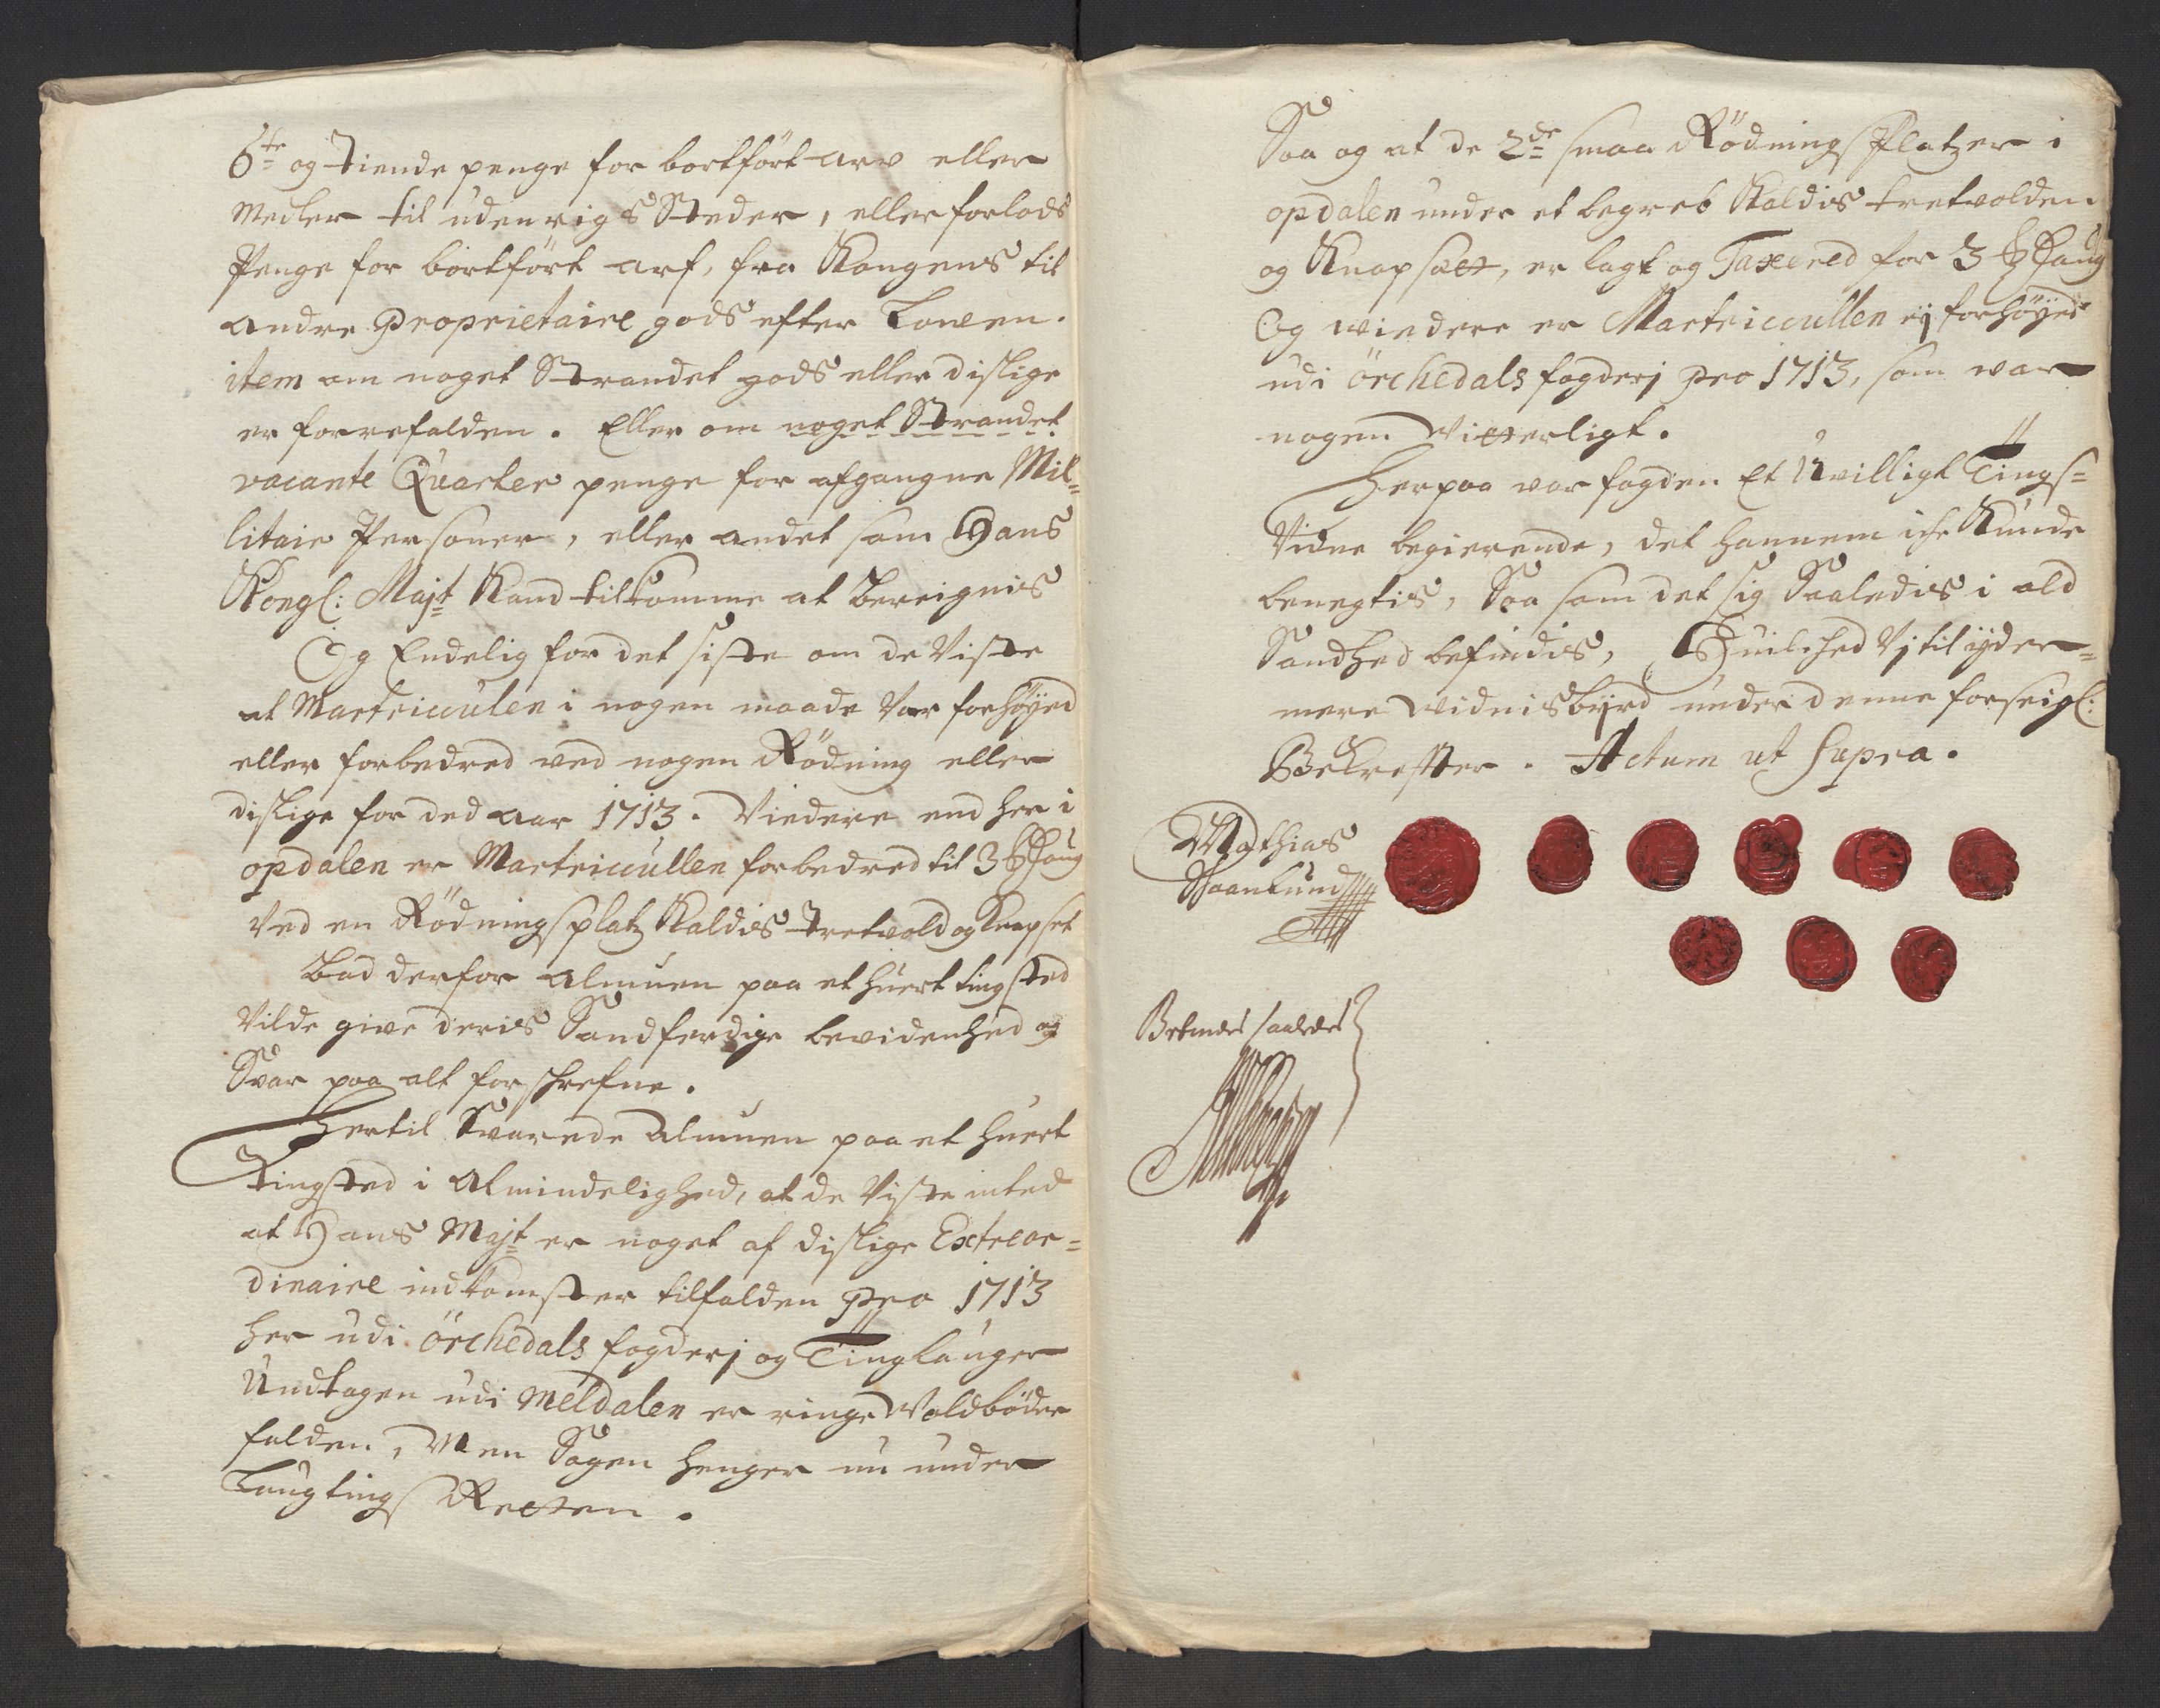 6te og Tiende penge for bortført arv eller
Medler til udenrigs Steder, eller forlods
Penge for bortført arf, fra Kongens til
andre Proprietaire gods efter Lowen.
item om noget Strandet gods eller dislige
er forrefalden. Eller om noget Strandet
vacante Quarter penge for afgangne Mil-
litaire Personer, eller andet som Hans
Kongl: Majt Kand tilkomme at Bereignis
Og Endelig for det siste om de Viste
at Martriculen i nogen maade Var forhøyed
eller forbedred ved nogen Rødning eller
dislige for ded aar 1713. Viedere end her i
opdalen er Martricullen forbedred til 3 Haug
Ved en Rødningsplatz Kaldis Tretvold og Knapset
Bad derfor Almuen paa et huert tingsted
Vilde give deris Sandferdige bevidenhed og
Svar paa alt forschrefne.
Hertil Svarede Almuen paa et huert
Tingsted i Almindelighed, at de Vyste inted
at Hans Majt er noget af dislige Extreor-
dinaire indkomster tilfalden pro 1713
her udi Örchedals fogderj og Tinglauger
Undtagen udi Meldalen er ringe Voldbøder
falden, Men Sagen henger nu under
Laugtings Retten.
Saa og at de 2de smaa RødningsPlatzer i
opdalen under et begreb Kaldis tretvolden
og Knapsætt, er lagt og Taxered for 3 Haug
Og widere er Martricullen ej forhøyed
udi Örchedals fogderj pro 1713, som war
nogen Vitterligt.
Herpaa var fogden Et Uvilligt Tings-
Vidne begierende, det hannem iche Kunde
benegtis, Saa som det sig Saaledis i ald
Sandhed befindis, Huilched Vj til ÿder-
mere Vidnisbyrd under denne forseigl:
Bekrefter. Actum ut Supra.
Mathias
Schaanlund
Bekiendes saaledes